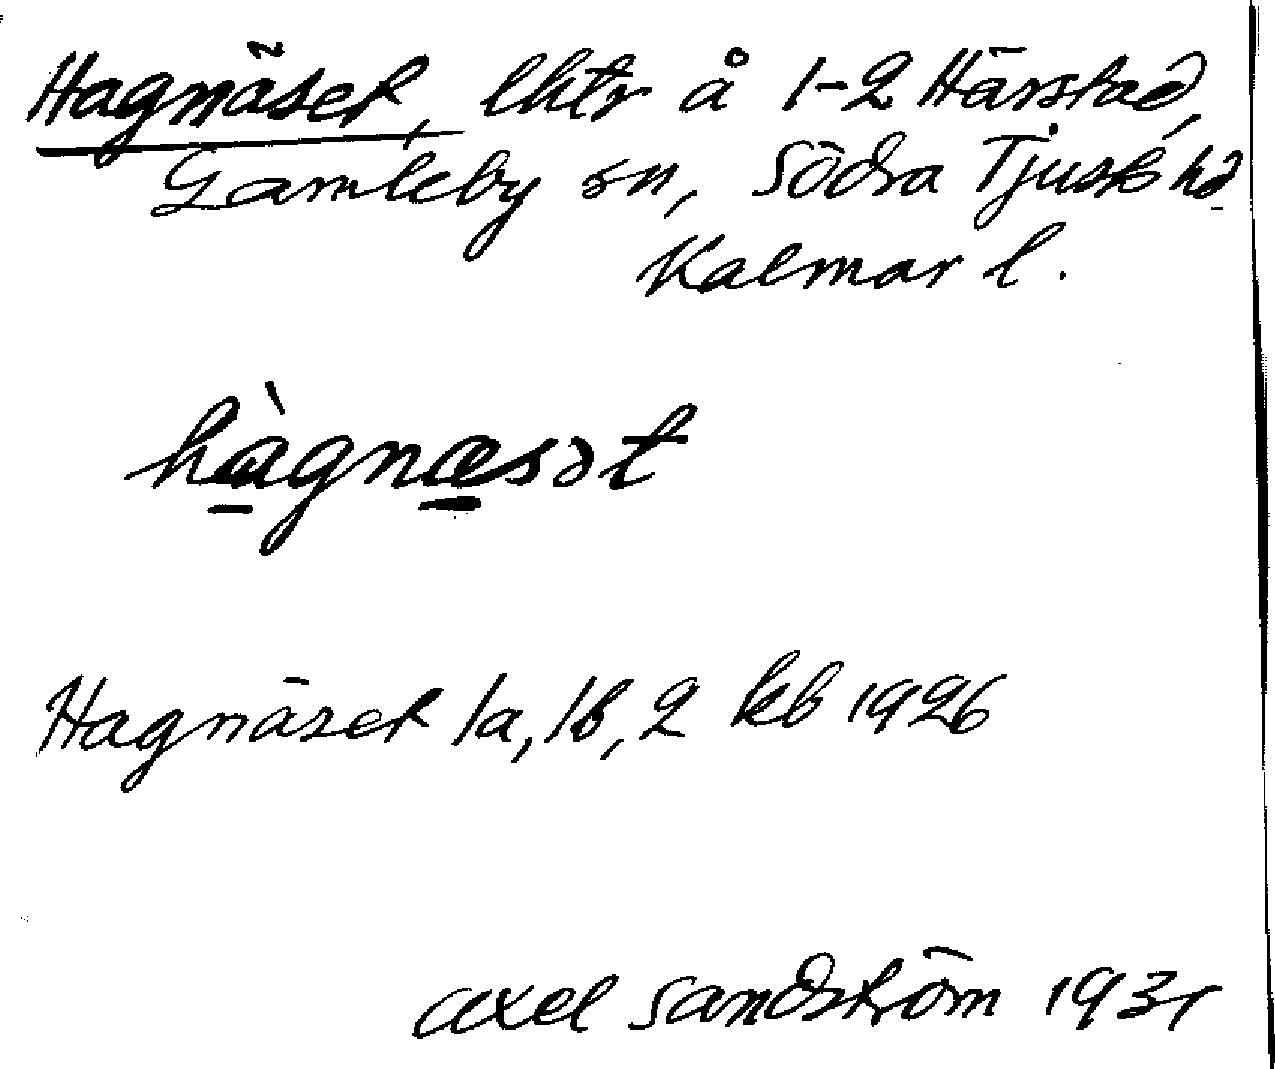 Hagnäset, lhtr å 1-2 Härstad,
Gamleby sn, Södra Tjust hd
Kalmar l.
hàgnæsət
Hagnäset 1a, 1b, 2 kb 1926
Axel Sandström 1931